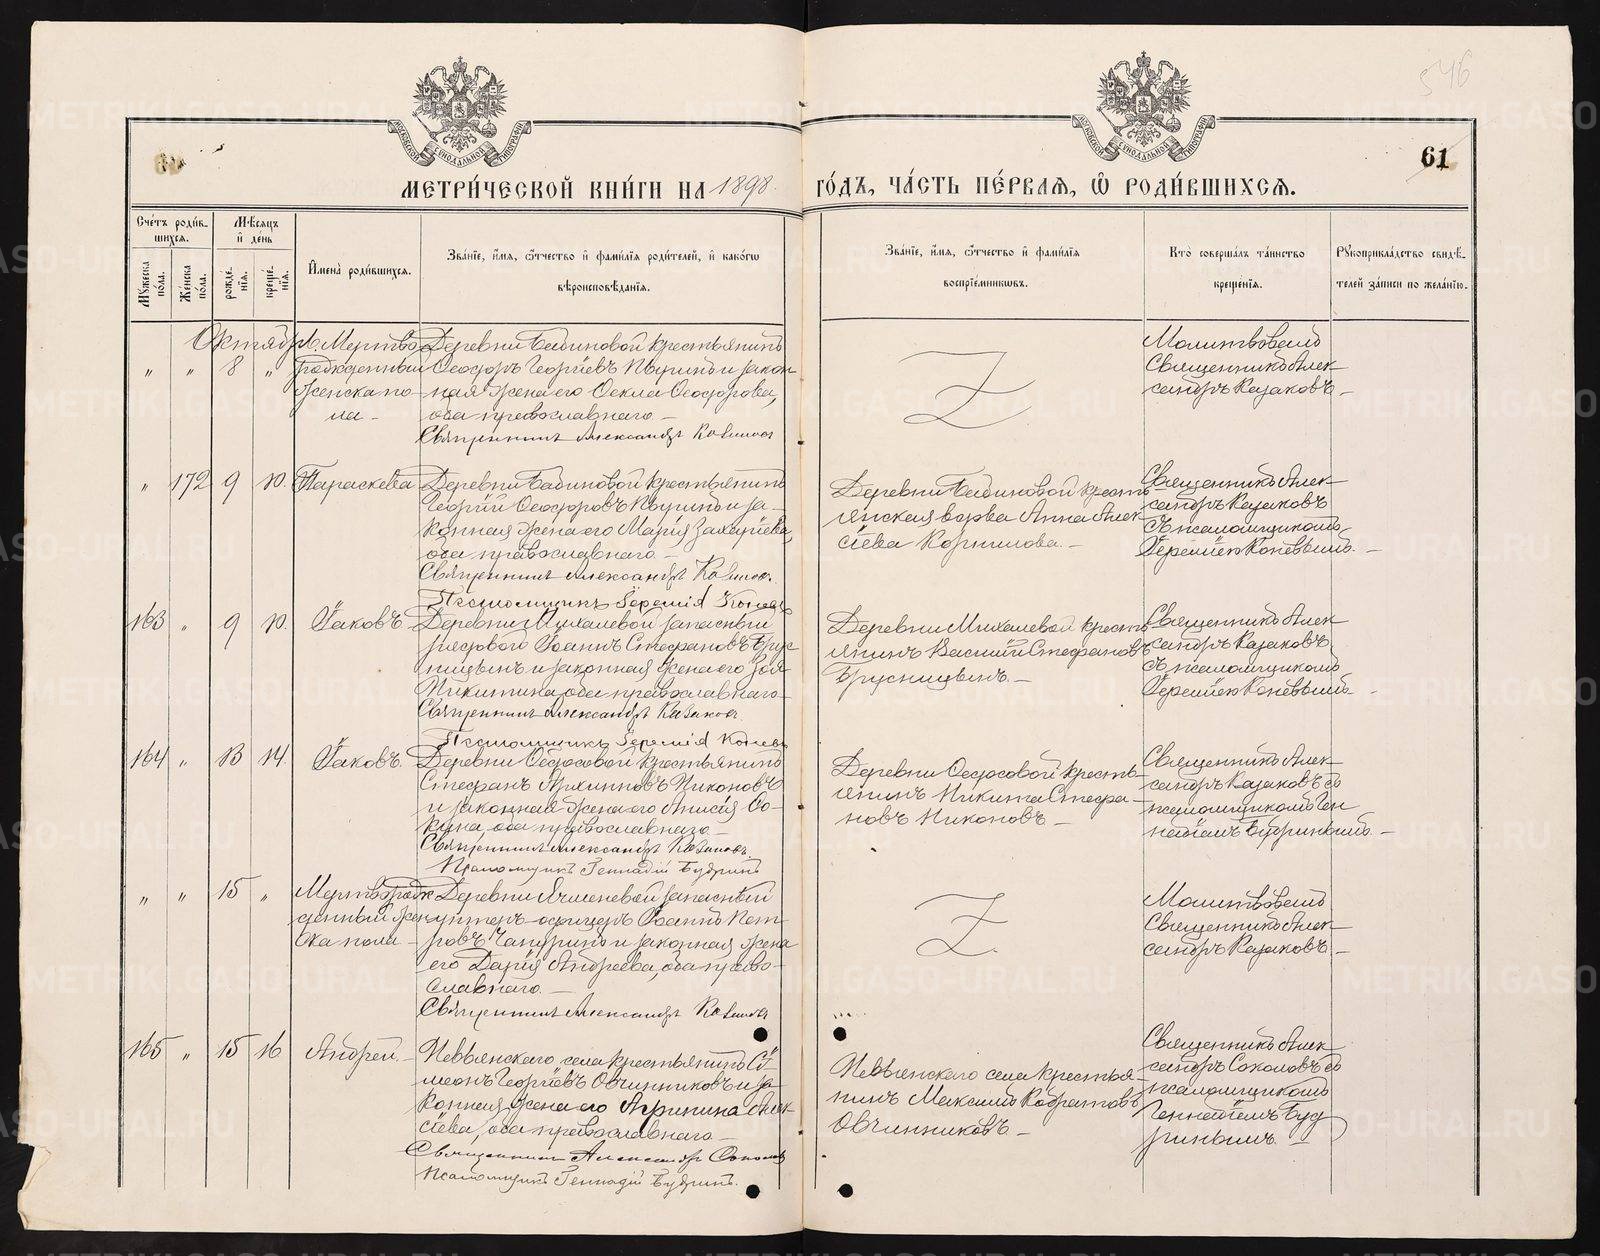 546
61
МОСКОВСКОЙ СѴНОДАЛЬНОЙ ТИПОГРАФІИ
МОСКОВСКОЙ СѴНОДАЛЬНОЙ ТИПОГРАФІИ
МЕТРИ́ЧЕСКОЙ КНИ́ГИ НА 1898 ГО́ДЪ, ЧА́СТЬ ПЕ́РВАѦ, Ѽ РОДИ́ВШИХСѦ.
Сче́тъ роди́в-
шихсѧ.
Мꙋ́жеска
по́ла.
Же́нска
по́ла.
Мѣ́сѧцъ
и҆ де́нь
рожде́-
нїѧ.
креще́-
нїѧ.
И҆мена̀ роди́вшихсѧ.
Зва́нїе, и҆́мѧ, ѻ҆́тчество и҆ фами́лїѧ роди́телей, и҆ како́гѡ
вѣроисповѣ́данїѧ.
Зва́нїе, и҆́мѧ, ѻ҆́тчество и҆ фами́лїѧ
воспрїе́мникѡвъ.
Кто̀ соверша́лъ та́инство
креще́нїѧ.
Рꙋкоприкла́дство свидѣ́-
телей за́писи по жела́нїю.
Октябрь.
" " 8 "
Мертво
рожденный
женска по-
ла -
Деревни Бабиновой крестьянинъ
Ѳеодоръ Георгіевъ и закон
ная жена его Ѳекла Ѳеодорова,
оба православнаго -
Священникъ Александръ Казаковъ
Молитвовалъ
Священникъ Алек-
сандръ Казаковъ -
" 172 9 10. Параскева
Деревни Бабиновой крестьянинъ
Георгій Ѳеодоровъ и за-
конная жена его Марія Захаріева,
оба православнаго -
Священникъ Александръ Казаковъ.
Псаломщикъ Іеремія Коневъ
Деревни Бабиновой кресть
янская вдова Анна Алек
сіева Корнилова. -
Священникъ Алек-
сандръ Казаковъ
съ псаломщикомъ
Іереміею Коневымъ. -
163 " 9 10. Іаковъ
Деревни Михалевой запасный
рядовой Іоаннъ Стефановъ Брус
ницынъ и законная жена его Зоя
Никитина, оба православнаго
Священникъ Александръ Казаковъ
Псаломщикъ Іеремія Коневъ
Деревни Михалевой кресть
янинъ Василій Стефановъ
Брусницынъ. -
Священникъ Алек
сандръ Казаковъ
съ псаломщикомъ
Іереміею Коневымъ -
164 " 13 14. Іаковъ.
Деревни Ѳедосовой крестьянинъ
Стефанъ Архиповъ Никоновъ
и законная жена его Анисія Ѳо-
кина, оба православнаго -
Священникъ Александръ Казаковъ
Псаломщикъ Геннадій Будринъ
Деревни Ѳедосовой кресть-
янинъ Никита Стефа-
новъ Никоновъ -
Священникъ Алек-
сандръ Казаковъ съ
псаломщикомъ Ген
надіемъ Будринымъ. -
" " 15 "
Мертворож
денный жен
ска пола -
Деревни Ячменевой запасный
унтеръ-офицеръ Іоаннъ Пет-
ровъ и законная жена
его Дарія Андреева, оба право-
славнаго. -
Священникъ Александръ Казаковъ
Молитвовалъ
Священникъ Алек-
сандръ Казаковъ -
165 " 15 16 Андрей. -
Невьянскаго села крестьянинъ Сѵ-
меонъ Георгіевъ Овчинниковъ и за-
конная жена его Агрипина Алек-
сіева, оба православнаго -
Священникъ Александръ Соколовъ
Псаломщикъ Геннадій Будринъ.
Невьянскаго села крестья-
нинъ Максимъ Кодратовъ
Овчинниковъ -
Священникъ Алек-
сандръ Соколовъ съ
псаломщикомъ
Геннадіемъ Буд
ринымъ. -
METRIKI.GASO-URAL.RU